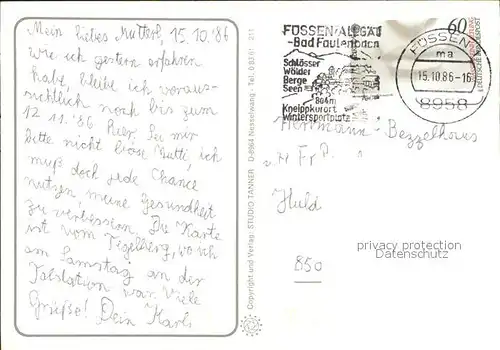 Mein liebes Mutterl, 15.10.'86
wie ich gestern erfahren
habe, bleibe ich voraus-
sichtlich noch bis zum
12.11.'86 hier. Sei mir
bitte nicht böse Mutti, ich
muß doch jede Chance
nutzen, meine Gesundheit
zu verbessern. Die Karte
ist vom Tegelberg, wo ich
am Samstag an der
Talstation war. Viele
Grüße! Dein Karl
Copyright und Verlag: STUDIO TANNER D-8964 Nesselwang · Tel. 0 83 61
FÜSSEN/ALLGÄU
-Bad Faulenbach
Schlösser
Wälder
Berge
Seen
804m
Kneippkurort
Wintersportplatz
60
DEUTSCHE BUNDESPOST
FÜSSEN
ma
15.10.86-16
8958
Herrmann-Bezzelhaus
Huld
850
privacy protection
Datenschutz